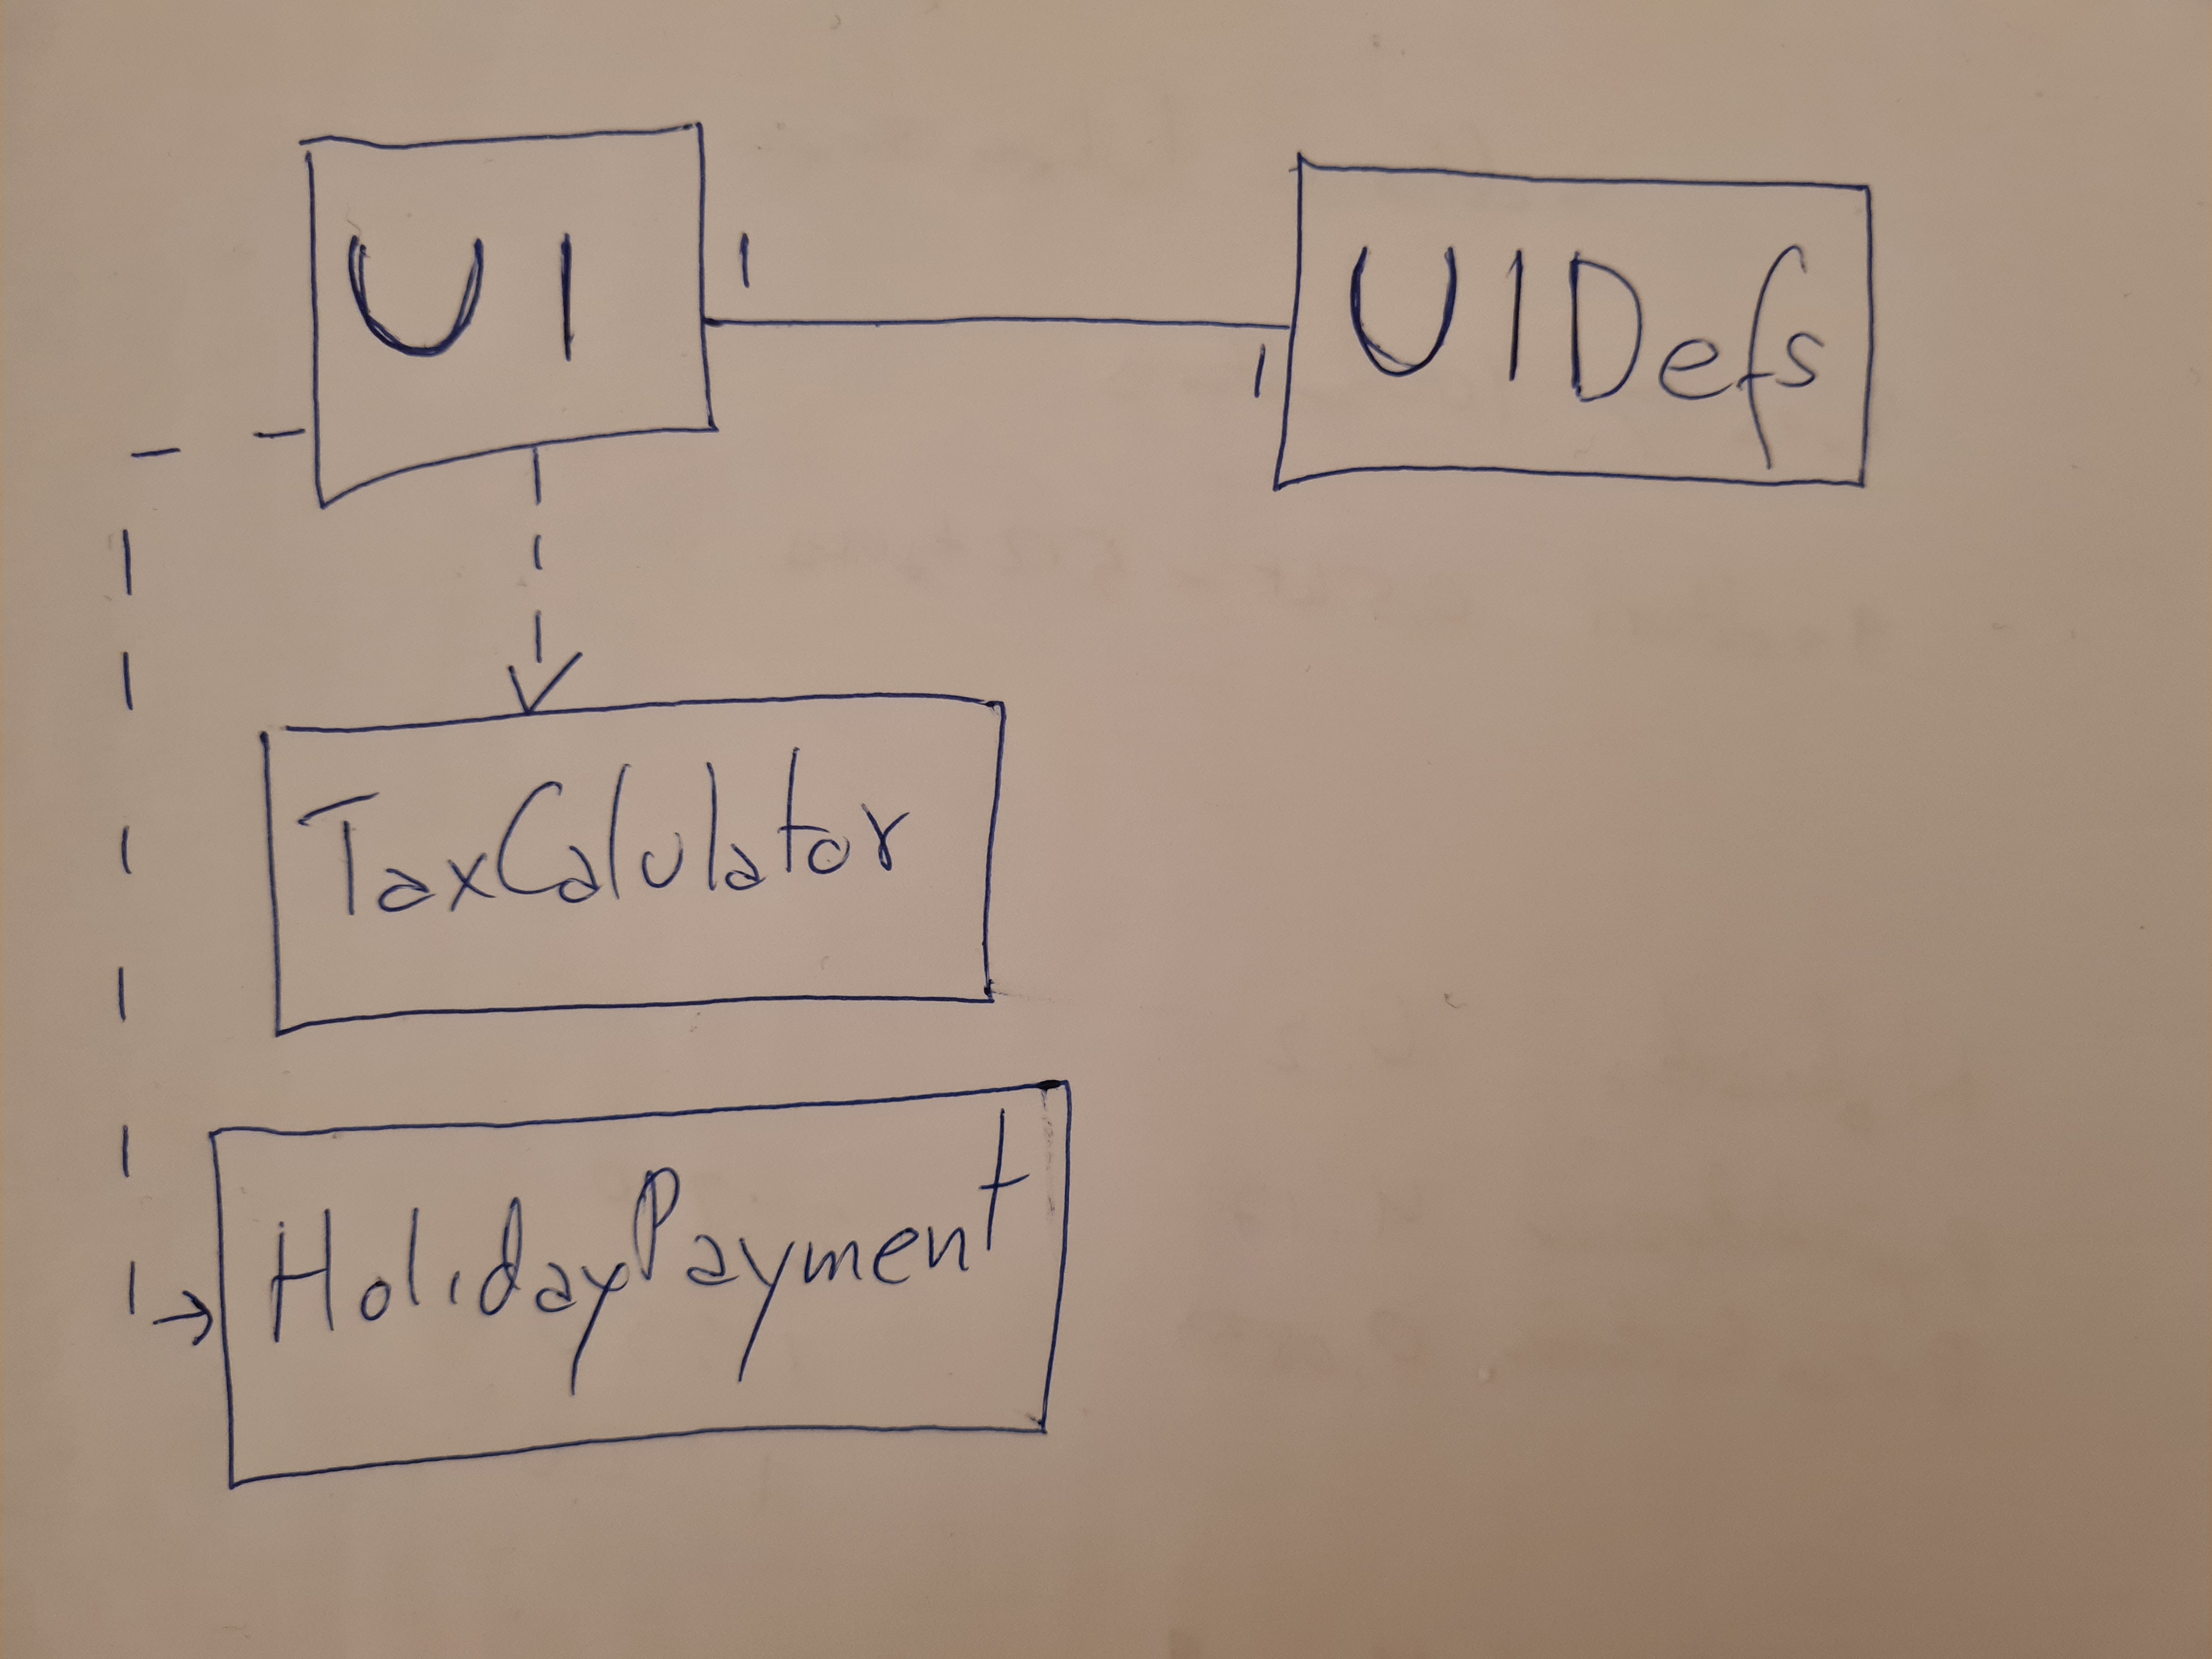 UI
1
1
UIDefs
TaxCalulator
HolidayPayment